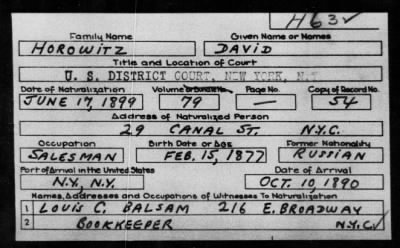 H63
Family Name Given Name or Names
HOROWITZ DAVID
Title and Location of Court
U. S. DISTRICT COURT, NEW YORK, N.Y.
Date of Naturalization Volume or Bundle No. Page No. Copy of Record No.
JUNE 17, 1899 79 — 54
Address of Naturalized Person
29 CANAL ST. N.Y.C.
Occupation Birth Date or Age Former Nationality
SALESMAN FEB. 15, 1877 RUSSIAN
Port of Arrival in the United States Date of Arrival
N.Y., N.Y. OCT. 10, 1890
Names, Addresses and Occupations of Witnesses To Naturalization
1 LOUIS C. BALSAM 216 E. BROADWAY
2 BOOKKEEPER N.Y.C.